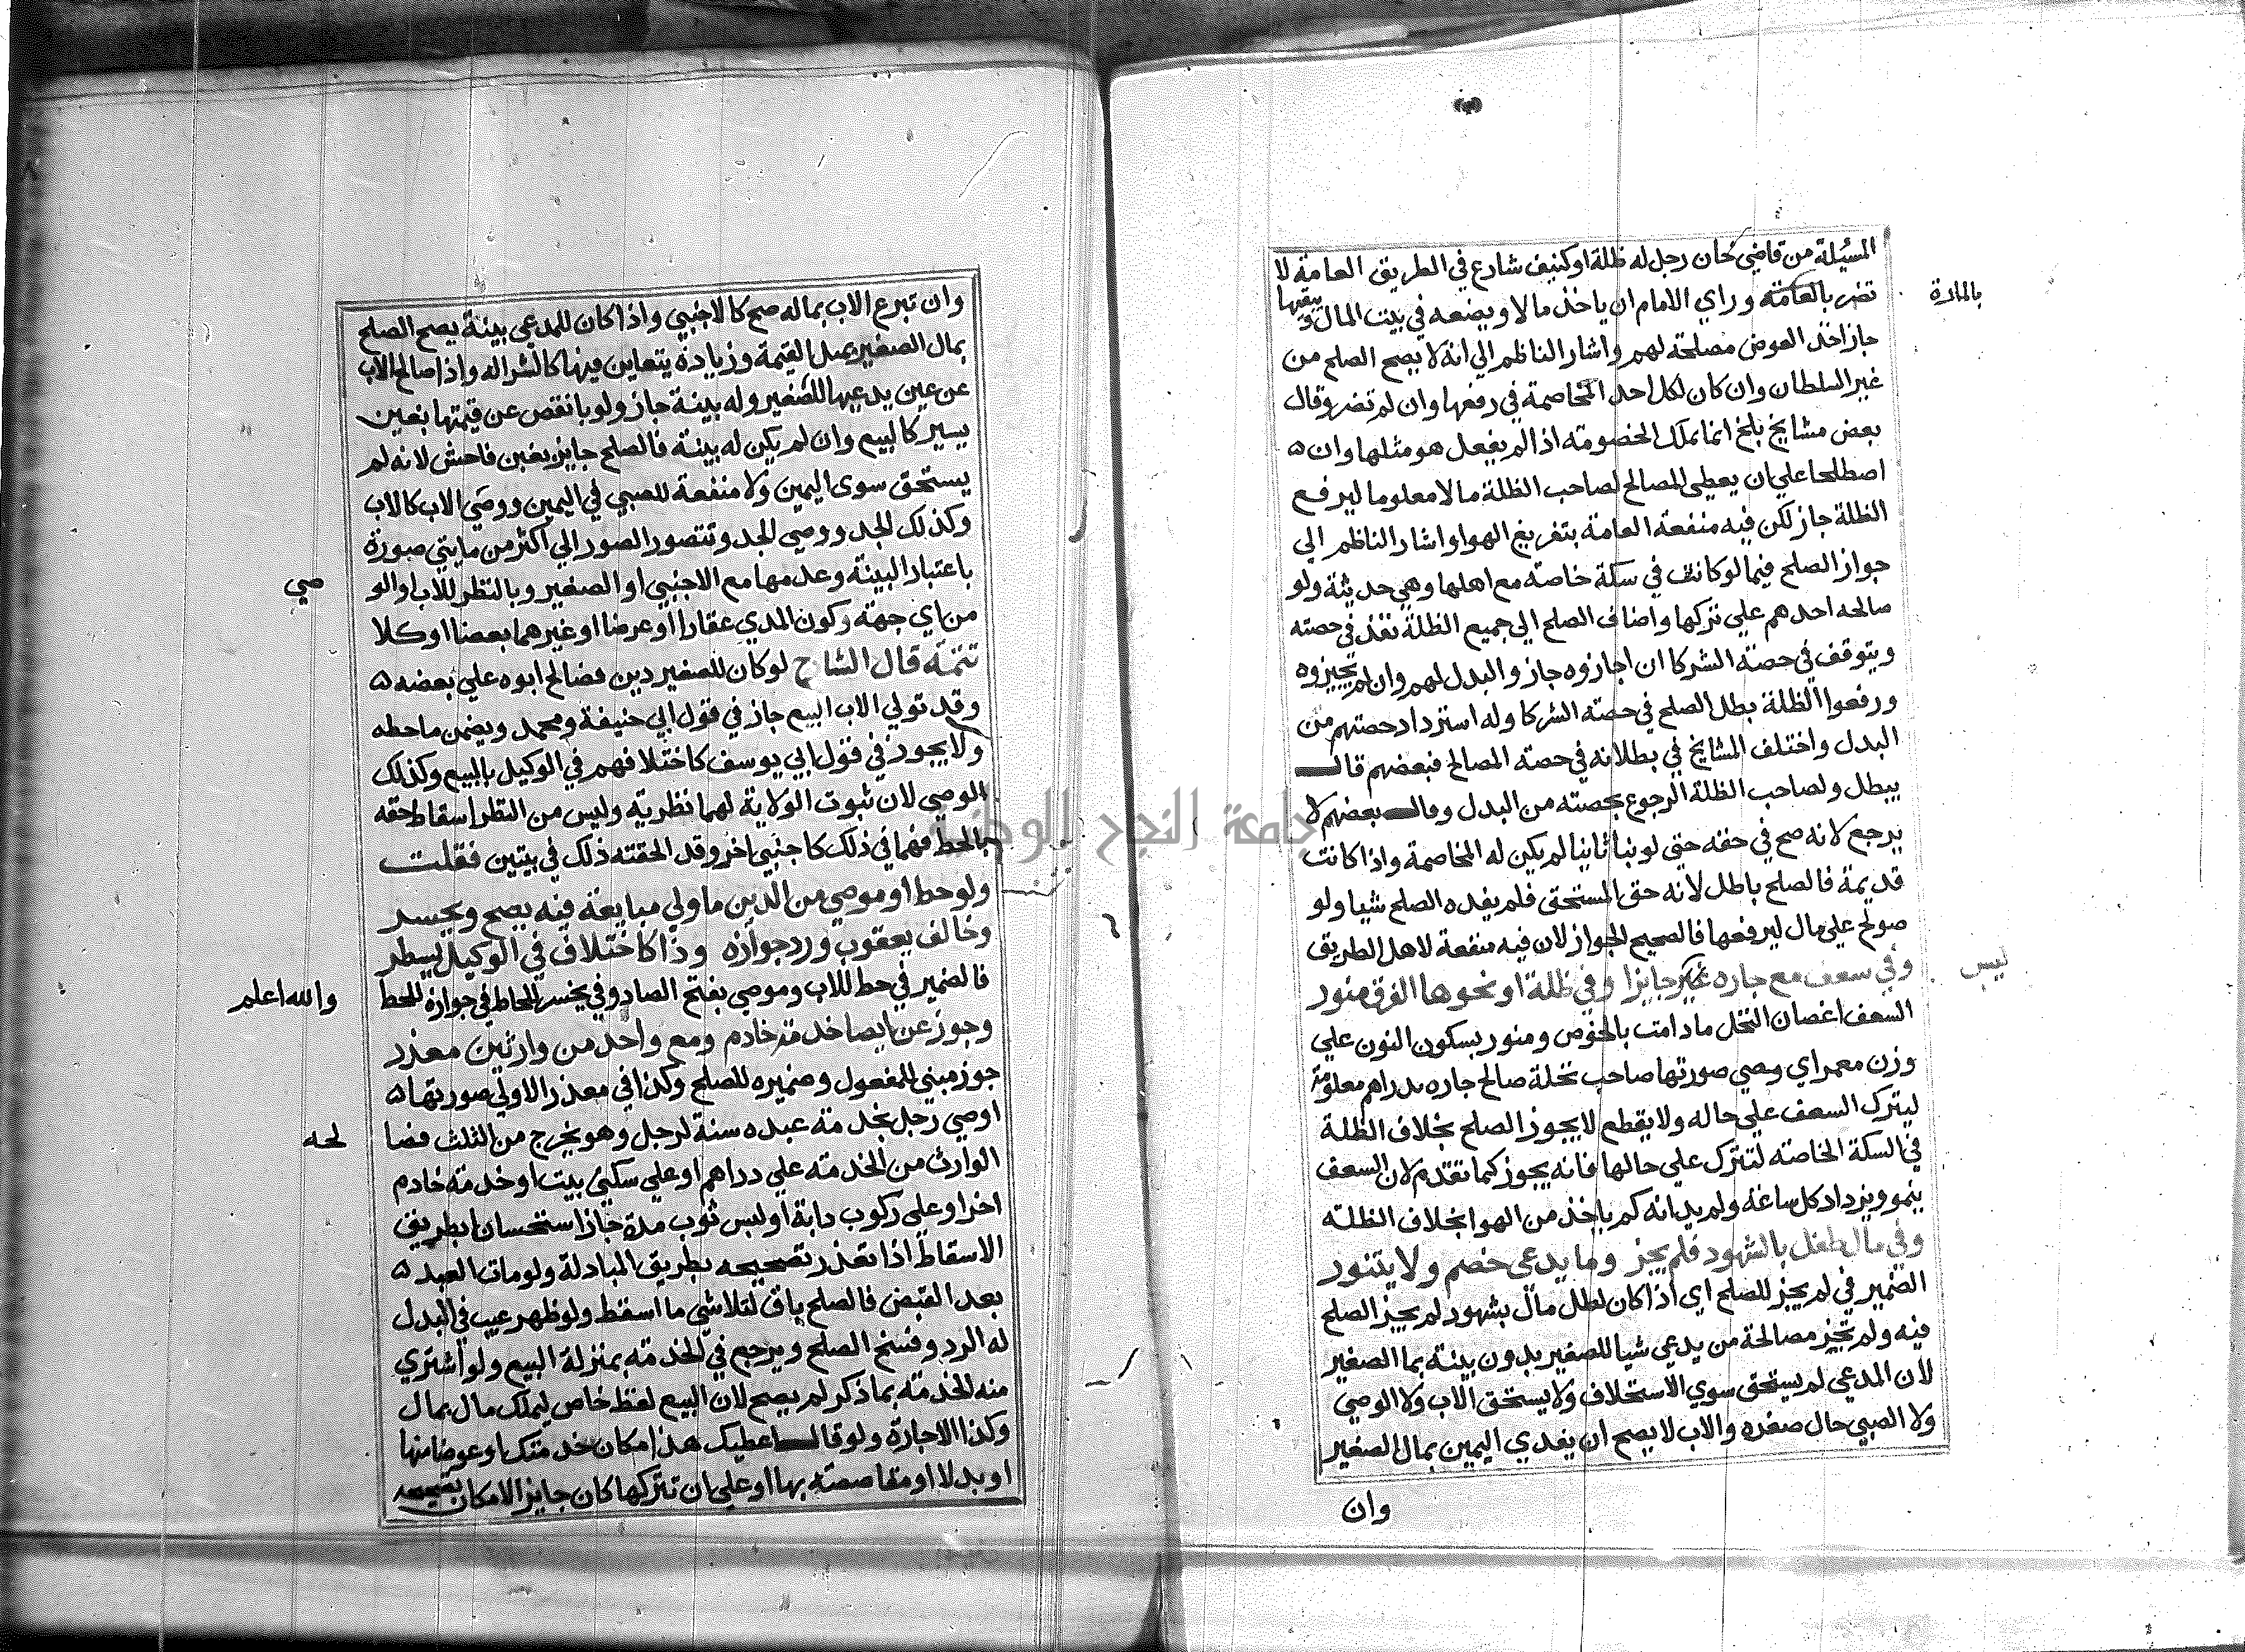 المسئلة من قاضي خان رجل له ظلة او كنيف شارع في الطريق العامة لا
تضر بالعامة وراي الامام ان ياخذ مالا ويضعه في بيت المال ويبقيها
بالمادة
جاز اخذ العوض مصلحة لهم واشار الناظم الي انه لا يصح الصلح من
غير السلطان وان كان لكل احد المخاصمة في رفعها وان لم تضر وقال
بعض مشايخ بلخ انما يملك الخصومة اذا لم يفعل هو مثلها وان
اصطلحا علي ان يعطي المصالح لصاحب الظلة مالا معلوما ليرفع
الظلة جاز لكن فيه منفعة العامة بتفريغ الهوا واشار الناظم الي
جواز الصلح فيما لو كانت في سكة خاصة مع اهلها وهي حديثة ولو
صالحه احدهم علي تركها واضاف الصلح الي جميع الظلة نفذ في حصته
ويتوقف في حصة الشركا ان اجازوه جاز والبدل لهم وان لم يجيزوه
ورفعوا الظلة بطل الصلح في حصة الشركا وله استرداد حصتهم من
البدل واختلف المشايخ في بطلانه في حصة المصالح فبعضهم قال
يبطل ولصاحب الظلة الرجوع بحصته من البدل وقال بعضهم لا
يرجع لانه صح في حقه حتي لو بنا ثانيا لم يكن له المخاصمة واذا كانت
قديمة فالصلح باطل لانه حق المستحق فلم يفده الصلح شيا ولو
صولح علي مال ليرفعها فالصحيح الجواز لان فيه منفعة لاهل الطريق
وفي سعف مع جاره غير جايزا وفي ظلة او نحوها الفرق منور
ليس
السعف اغصان النخل ما دامت بالخوص ومنور بسكون النون علي
وزن معمر اي وصي صورتها صاحب نخلة صالح جاره بدراهم معلومة
ليترك السعف علي حاله ولا يقطع لا يجوز الصلح بخلاف الظلة
في السكة الخاصة لتترك علي حالها فانه يجوز كما تقدم لان السعف
ينمو ويزداد كل ساعة ولم يدر انه كم ياخذ من الهوا بخلاف الظلة
وفي مال طفل بالشهود فلم يجز وما يدعي خصم ولا يتنور
الضمير في لم يجز للصلح اي اذا كان لطل مال بشهود لم يجز الصلح
فيه ولم تجز مصالحة من يدعي شيا للصغير بدون بينة بما الصغير
لان المدعي لم يستحق سوي الاستحلاف ولا يستحق الاب ولا الوصي
ولا الصبي حال صغره والاب لا يصح ان يفدي اليمين بمال الصغير
وان
وان تبرع الاب بماله صح كالاجنبي واذا كان للمدعي بينة يصح الصلح
بمال الصغير بمثل القيمة وزيادة يتغابن فيها كالشرا له واذا صالح الاب
عن عين يدعيها للصغير وله بينة جاز ولو بانقص عن قيمتها بغبن
يسير كالبيع وان لم يكن له بينة فالصلح جايز بغبن فاحش لانه لم
يستحق سوى اليمين ولا منفعة للصبي في اليمين ووصي الاب كالاب
وكذلك الجد ووصي الجد وتتصور الصور الي اكثر من مايتي صورة
باعتبار البينة وعدمها مع الاجنبي او الصغير وبالنظر للاب او الو
صي
من اي جهة وكون المدي عقارا او عرضا او غيرهما بعضا او كلا
تتمة قال الشارح لو كان للصغير دين فصالح ابوه علي بعضه
وقد تولي الاب البيع جاز في قول ابي حنيفة ومحمد ويضمن ما حطه
ولا يجوز في قول ابي يوسف كاختلافهم في الوكيل بالبيع وكذلك
الوصي لان ثبوت الولاية لهما نظرية وليس من النظر اسقاط حقه
بالحط فهما في ذلك كاجنبي اخر وقد الحقته ذلك في بيتين فقلت
ولو حط او موصي من الدين ما ولي مبايعة فيه يصح ويخسر
وخالف يعقوب ورد جوازه وذا كاختلاف في الوكيل يسطر
فالضمير في حط للاب وموصي بفتح الصاد وفي يخسر للحاط في جوازه للحط
والله اعلم
وجوز عن ايصا خدمة خادم ومع واحد من وارثين معذر
جوز مبني للمفعول وضميره للصلح وكذا في معذر الاولي صورتها
اوصي رجل بخدمة عبده سنة لرجل وهو يخرج من الثلث فصا
لحه
الوارث من الخدمة علي دراهم او علي سكني بيت او خدمة خادم
اخر او علي ركوب دابة او لبس ثوب مدة جاز استحسانا بطريق
الاسقاط اذا تعذر تصحيحه بطريق المبادلة ولو مات العبد
بعد القبض فالصلح باق لتلاشي ما اسقط ولو ظهر عيب في البدل
له الرد وفسخ الصلح ويرجع في الخدمة بمنزلة البيع ولو اشتري
منه الخدمة بما ذكر لم يصح لان البيع لفظ خاص لتملك مال بمال
وكذا الاجارة ولو قال اعطيك هذا مكان خدمتك او عوضا منها
او بدلا او مقاصصة بها او علي ان تتركها كان جايزا لامكان تصحيحه
جامعة النجاح الوطنية